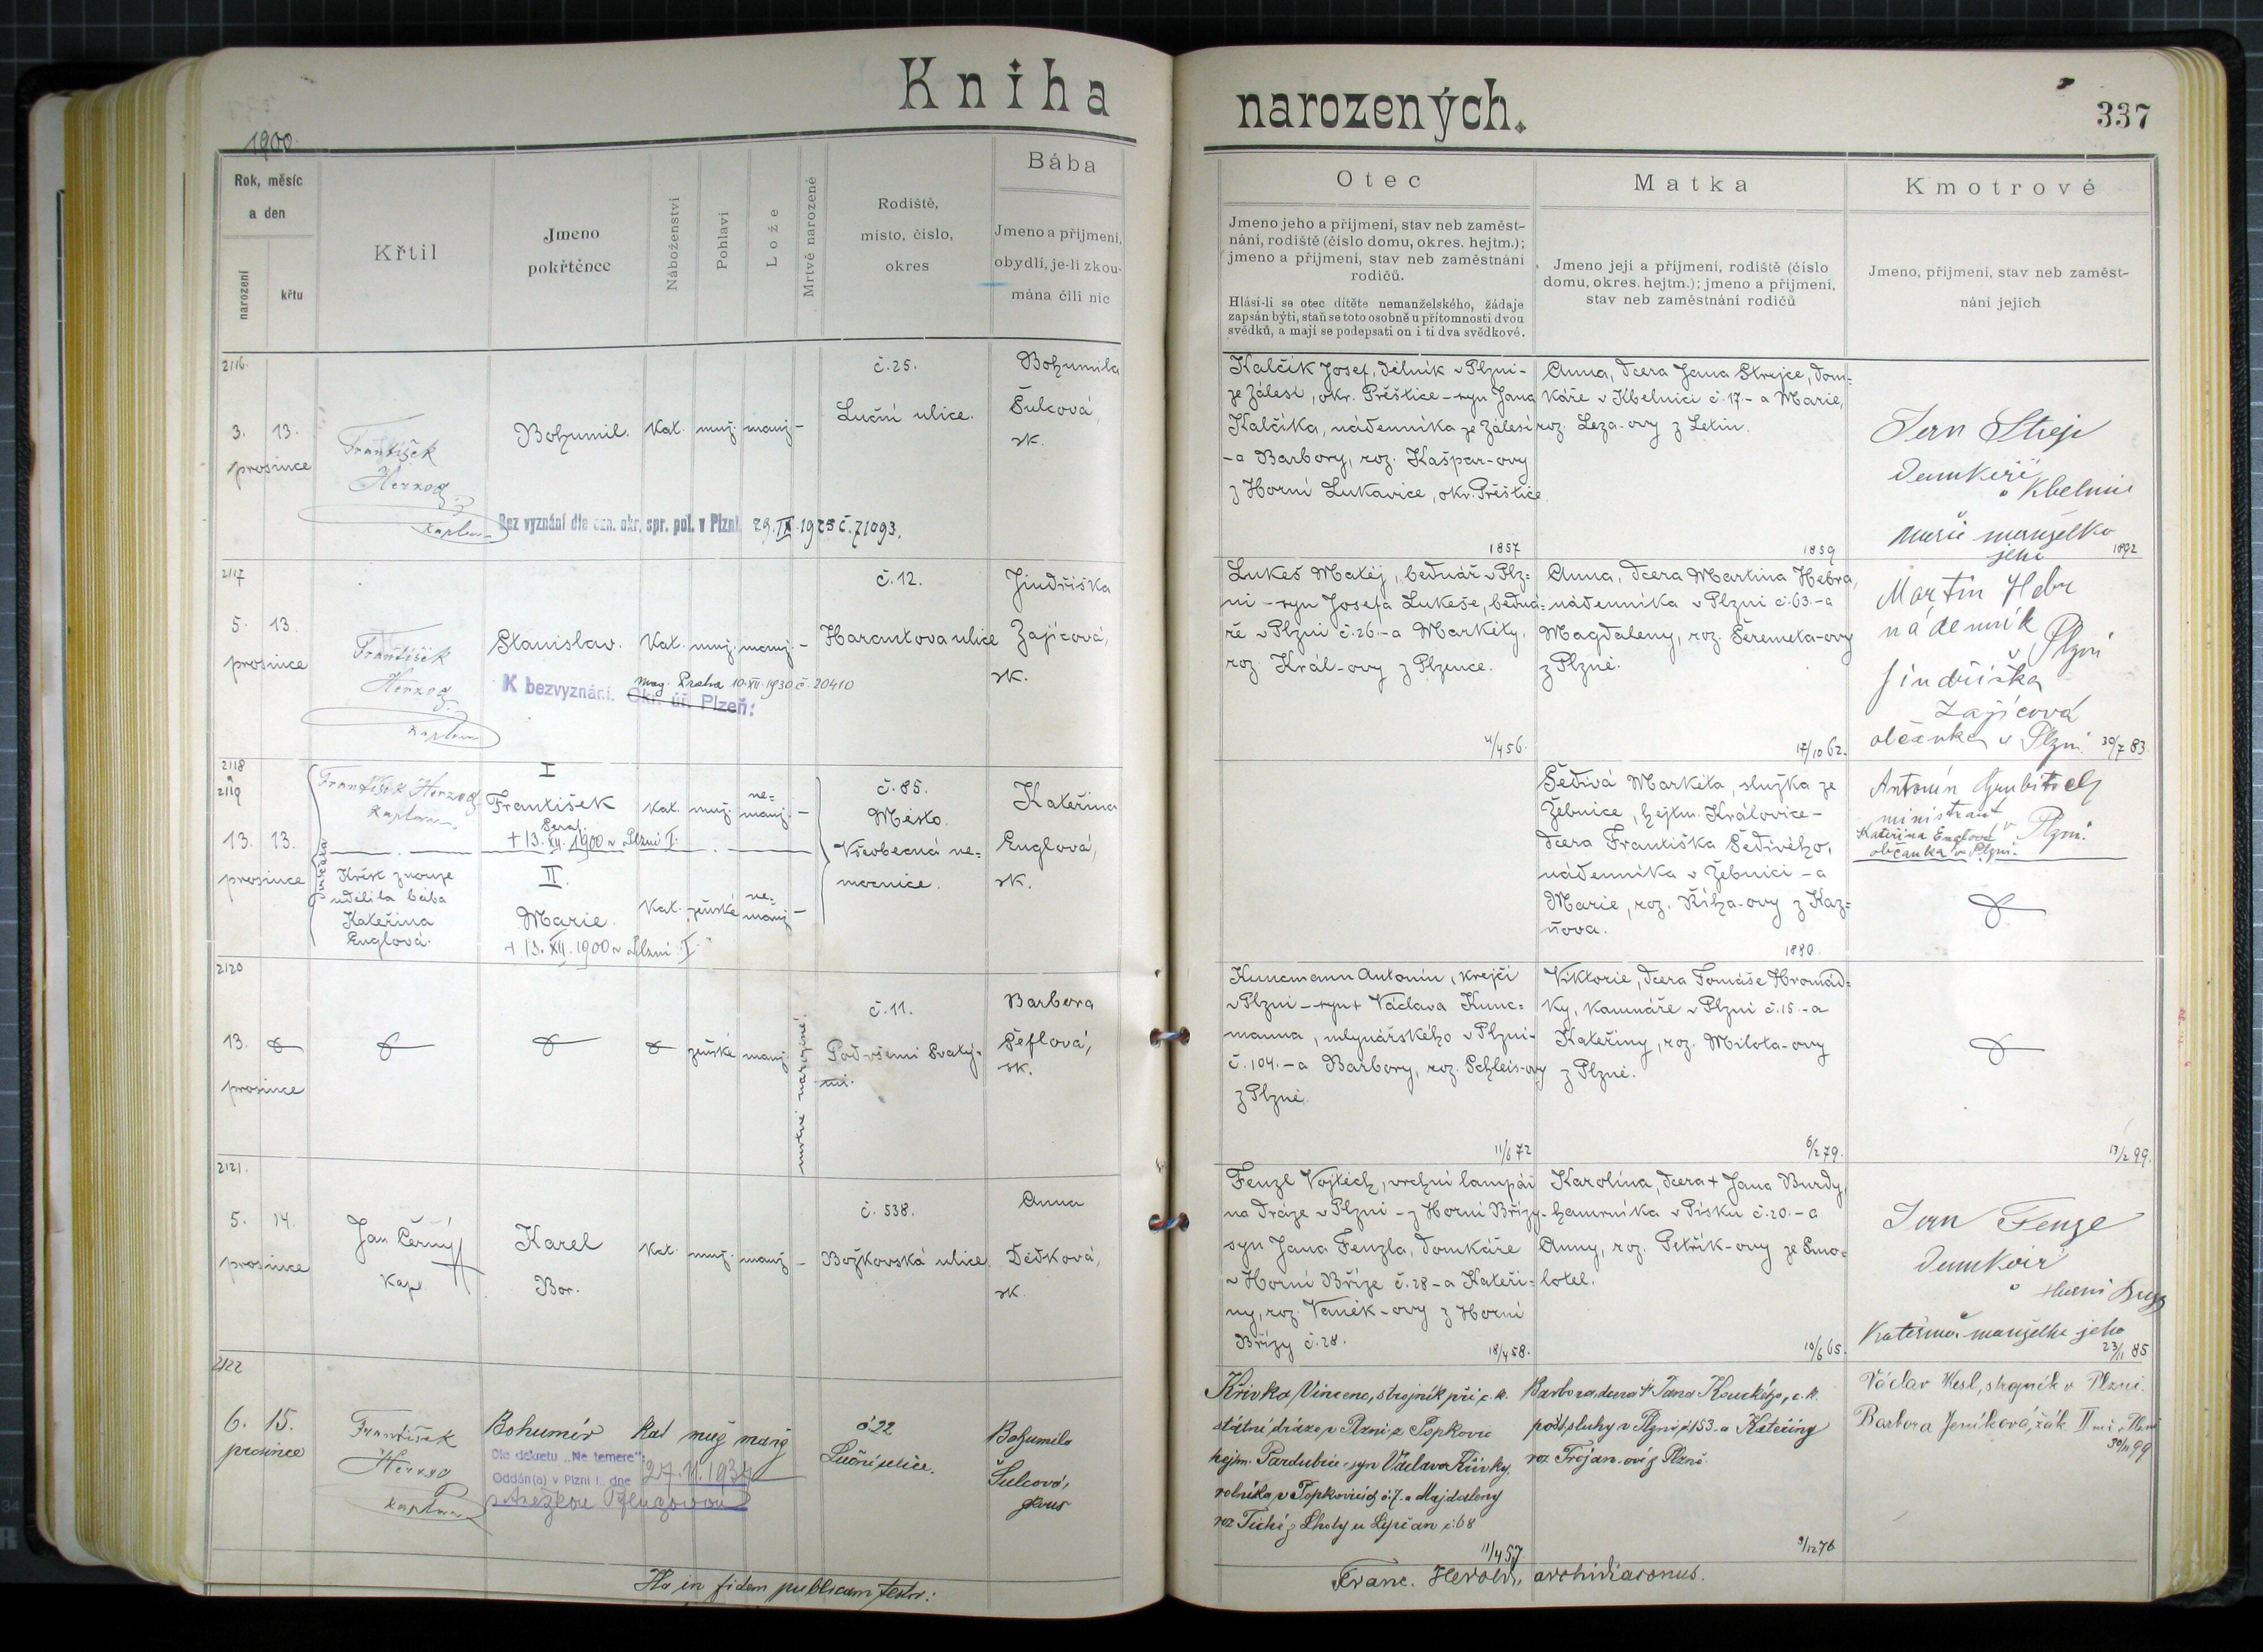 Kniha narozených.
337
1900.
Rok, měsíc
a den
narození
křtu
Křtil
Jmeno
pokřtěnce
Náboženství
Pohlaví
Lože
Mrtvě narozené
Rodiště,
místo, číslo,
okres
Bába
Jmeno a příjmení,
obydlí, je-li zkou-
mána čili nic
Otec
Jmeno jeho a příjmení, stav neb zaměst-
nání, rodiště (číslo domu, okres. hejtm.);
jmeno a příjmení, stav neb zaměstnání
rodičů.
Hlásí-li se otec dítěte nemanželského, žádaje
zapsán býti, staň se toto osobně u přítomnosti dvou
svědků, a mají se podepsati on i ti dva svědkové.
Matka
Jmeno její a příjmení, rodiště (číslo
domu, okres. hejtm.); jmeno a příjmení,
stav neb zaměstnání rodičů
Kmotrové
Jmeno, příjmení, stav neb zaměst-
nání jejich
2116.
3. 13.
prosince
František
Herzog
kaplan
Bohumil.
Kat.
muž.
manž.
-
č. 25.
Luční ulice.
Bohumila
Šulcová,
zk.
Bez vyznání dle ozn. okr. spr. pol. v Plzni 29. IX. 1925 č. 71093.
Kalčík Josef, dělník v Plzni-
ze Zálesí, okr. Přeštice - syn Jana
Kalčíka, nádenníka ze Zálesí
- a Barbory, roz. Kašpar-ovy
z Horní Lukavice, okr. Přeštice
1857
Anna, dcera Jana Strejce, dom=
káře v Kbelnici č. 17. - a Marie,
roz. Leza-ovy z Letin.
1859
Jan Strejc
Domkář
v Kbelnici
Marie manželka
jeho
1892
2117
5. 13.
prosince
František
Herzog
kaplan
Stanislav.
Kat.
muž.
manž.
-
č. 12.
Harantova ulice
Jindřiška
Zajícová,
zk.
K bezvyznání. Okr. úř. Plzeň:
mag. Praha 10. XII. 1930 č. 20410
Lukeš Matěj, bednář v Plz=
ni - syn Josefa Lukeše, bedná=
ře v Plzni č. 26. - a Markéty,
roz. Král-ovy z Plzence.
4/4 56.
Anna, dcera Martina Hebra,
nádenníka v Plzni č. 63. - a
Magdaleny, roz. Šeremeta-ovy
z Plzně.
17/10 62.
Martin Hebr
nádenník
v Plzni
Jindřiška
Zajícová
občanka v Plzni
30/7 83
2118
2119
13. 13.
prosince
František Herzog
kaplan.
Křest z nouze
udělila bába
Kateřina
Englová.
I
František
Seraf.
+ 13. XII. 1900 v Plzni I.
II.
Marie.
+ 13. XII. 1900 v Plzni I.
Kat.
muž.
ne=
manž.
-
Kat.
ženské
ne=
manž.
-
č. 85.
Město.
Všeobecná ne=
mocnice.
Kateřina
Englová,
zk.
Šedivá Markéta, služka ze
Žebnice, hejtm. Kralovice -
dcera Františka Šedivého,
nádenníka v Žebnici - a
Marie, roz. Říha-ovy z Kaz=
ňova.
1880.
Antonín
ministrant
v Plzni.
Kateřina Englová
občanka v Plzni.
2120
13.
prosince
ženské
manž.
mrtvě narozené.
č. 11.
Pod všemi Svatý-
mi.
Barbora
Šeflová,
zk.
Kuncmann Antonín, krejčí
v Plzni - syn + Václava Kunc=
manna, mlynářského v Plzni-
č. 104. - a Barbory, roz. Schleis-ovy
z Plzně.
11/6 72
Viktorie, dcera Tomáše Hromád=
ky, kamnáře v Plzni č. 15. - a
Kateřiny, roz. Milota-ovy
z Plzně.
6/2 79.
13/2 99.
2121.
5. 14.
prosince
Jan Černý
kapl
Karel
Bor.
Kat.
muž.
manž.
-
č. 538.
Božkovská ulice.
Anna
Dědková,
zk.
Fenzl Vojtěch, vrchní lampář
na dráze v Plzni - z Horní Břízy-
syn Jana Fenzla, domkáře
v Horní Bříze č. 28 - a Kateři=
ny, roz. Vaněk-ovy z Horní
Břízy č. 28.
18/4 58.
Karolina, dcera + Jana Burdy,
hamrníka v Písku č. 20. - a
Anny, roz. Petřík-ovy ze Smo=
lotel.
10/6 65.
Jan Fenzl
Domkář
v Horní Bříze
Kateřina manželka jeho
23/11 85
2122
6. 15.
prosince
František
Herzog
kaplan
Bohumír
Kat
muž
manž
č. 22
Luční ulice.
Bohumila
Šulcová,
zkouš
Dle dekretu „Ne temere":
Oddán(a) v Plzni I. dne 27. VI. 1934
s Anežkou
Křivka Vincenc, strojník při c. k.
státní dráze v Plzni z Popkovic
hejtm. Pardubice - syn Václava Křivky,
rolníka v Popkovicích č. 7. a Majdaleny
roz Tiché z Lhoty u Lipčan č. 68
11/4 57
Barbora, dcera + Jana Kouckého, c. k.
pošt. sluhy v Plzni č 153. a Kateřiny
roz Trojan-ové z Plzně.
9/12 76
Václav Kesl, strojník v Plzni.
Barbora Jeníková, žák. II. v Plzni
30/11 99
Ita in fidem publicam testor:
Franc. Herold, archidiaconus.